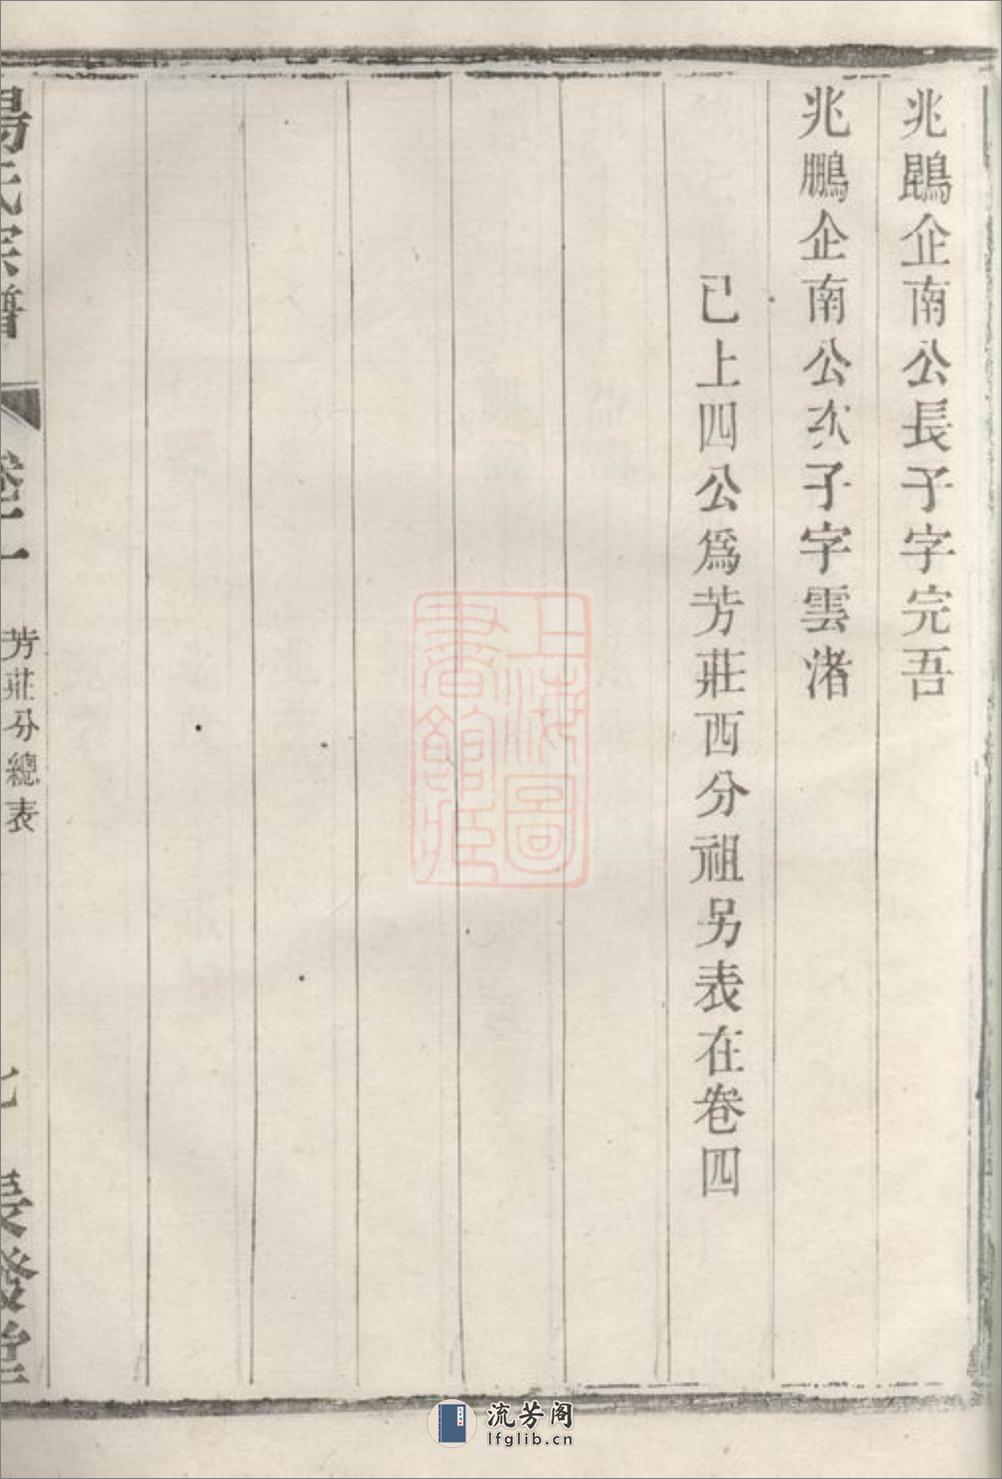 兆鵾企南公長子字完吾
兆鵬企南公次子字雲渚
已上四公爲芳莊西分祖另表在卷四
湯氏宗譜
卷一
芳莊分總表
七
長發堂
上海圖書館藏
流芳阁
lfglib.cn